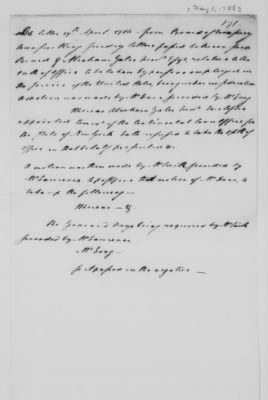 171.
The letter 27th April 1785 - from Board of Treasury
transferring sundry letters passed between said
Board & Abraham Yates Junr Esqr relative to the
oath of office to be taken by persons employed in
the service of the United States, being under consideration
A motion was made by Mr seconded by Mr King
Whereas Abraham Yates Junr Esqr
appointed Comr of the Continental Loan Office for
the State of New York hath refused to take the oath of
Office in that behalf prescribed &c.
A motion was then made by Mr Smith seconded by
Mr Lawrance to postpone that motion of Mr to
take up the following -
Whereas - &c.
The yeas & nays being required by Mr Smith
seconded by Mr Lawrance
Mr Long
passed in the negative -